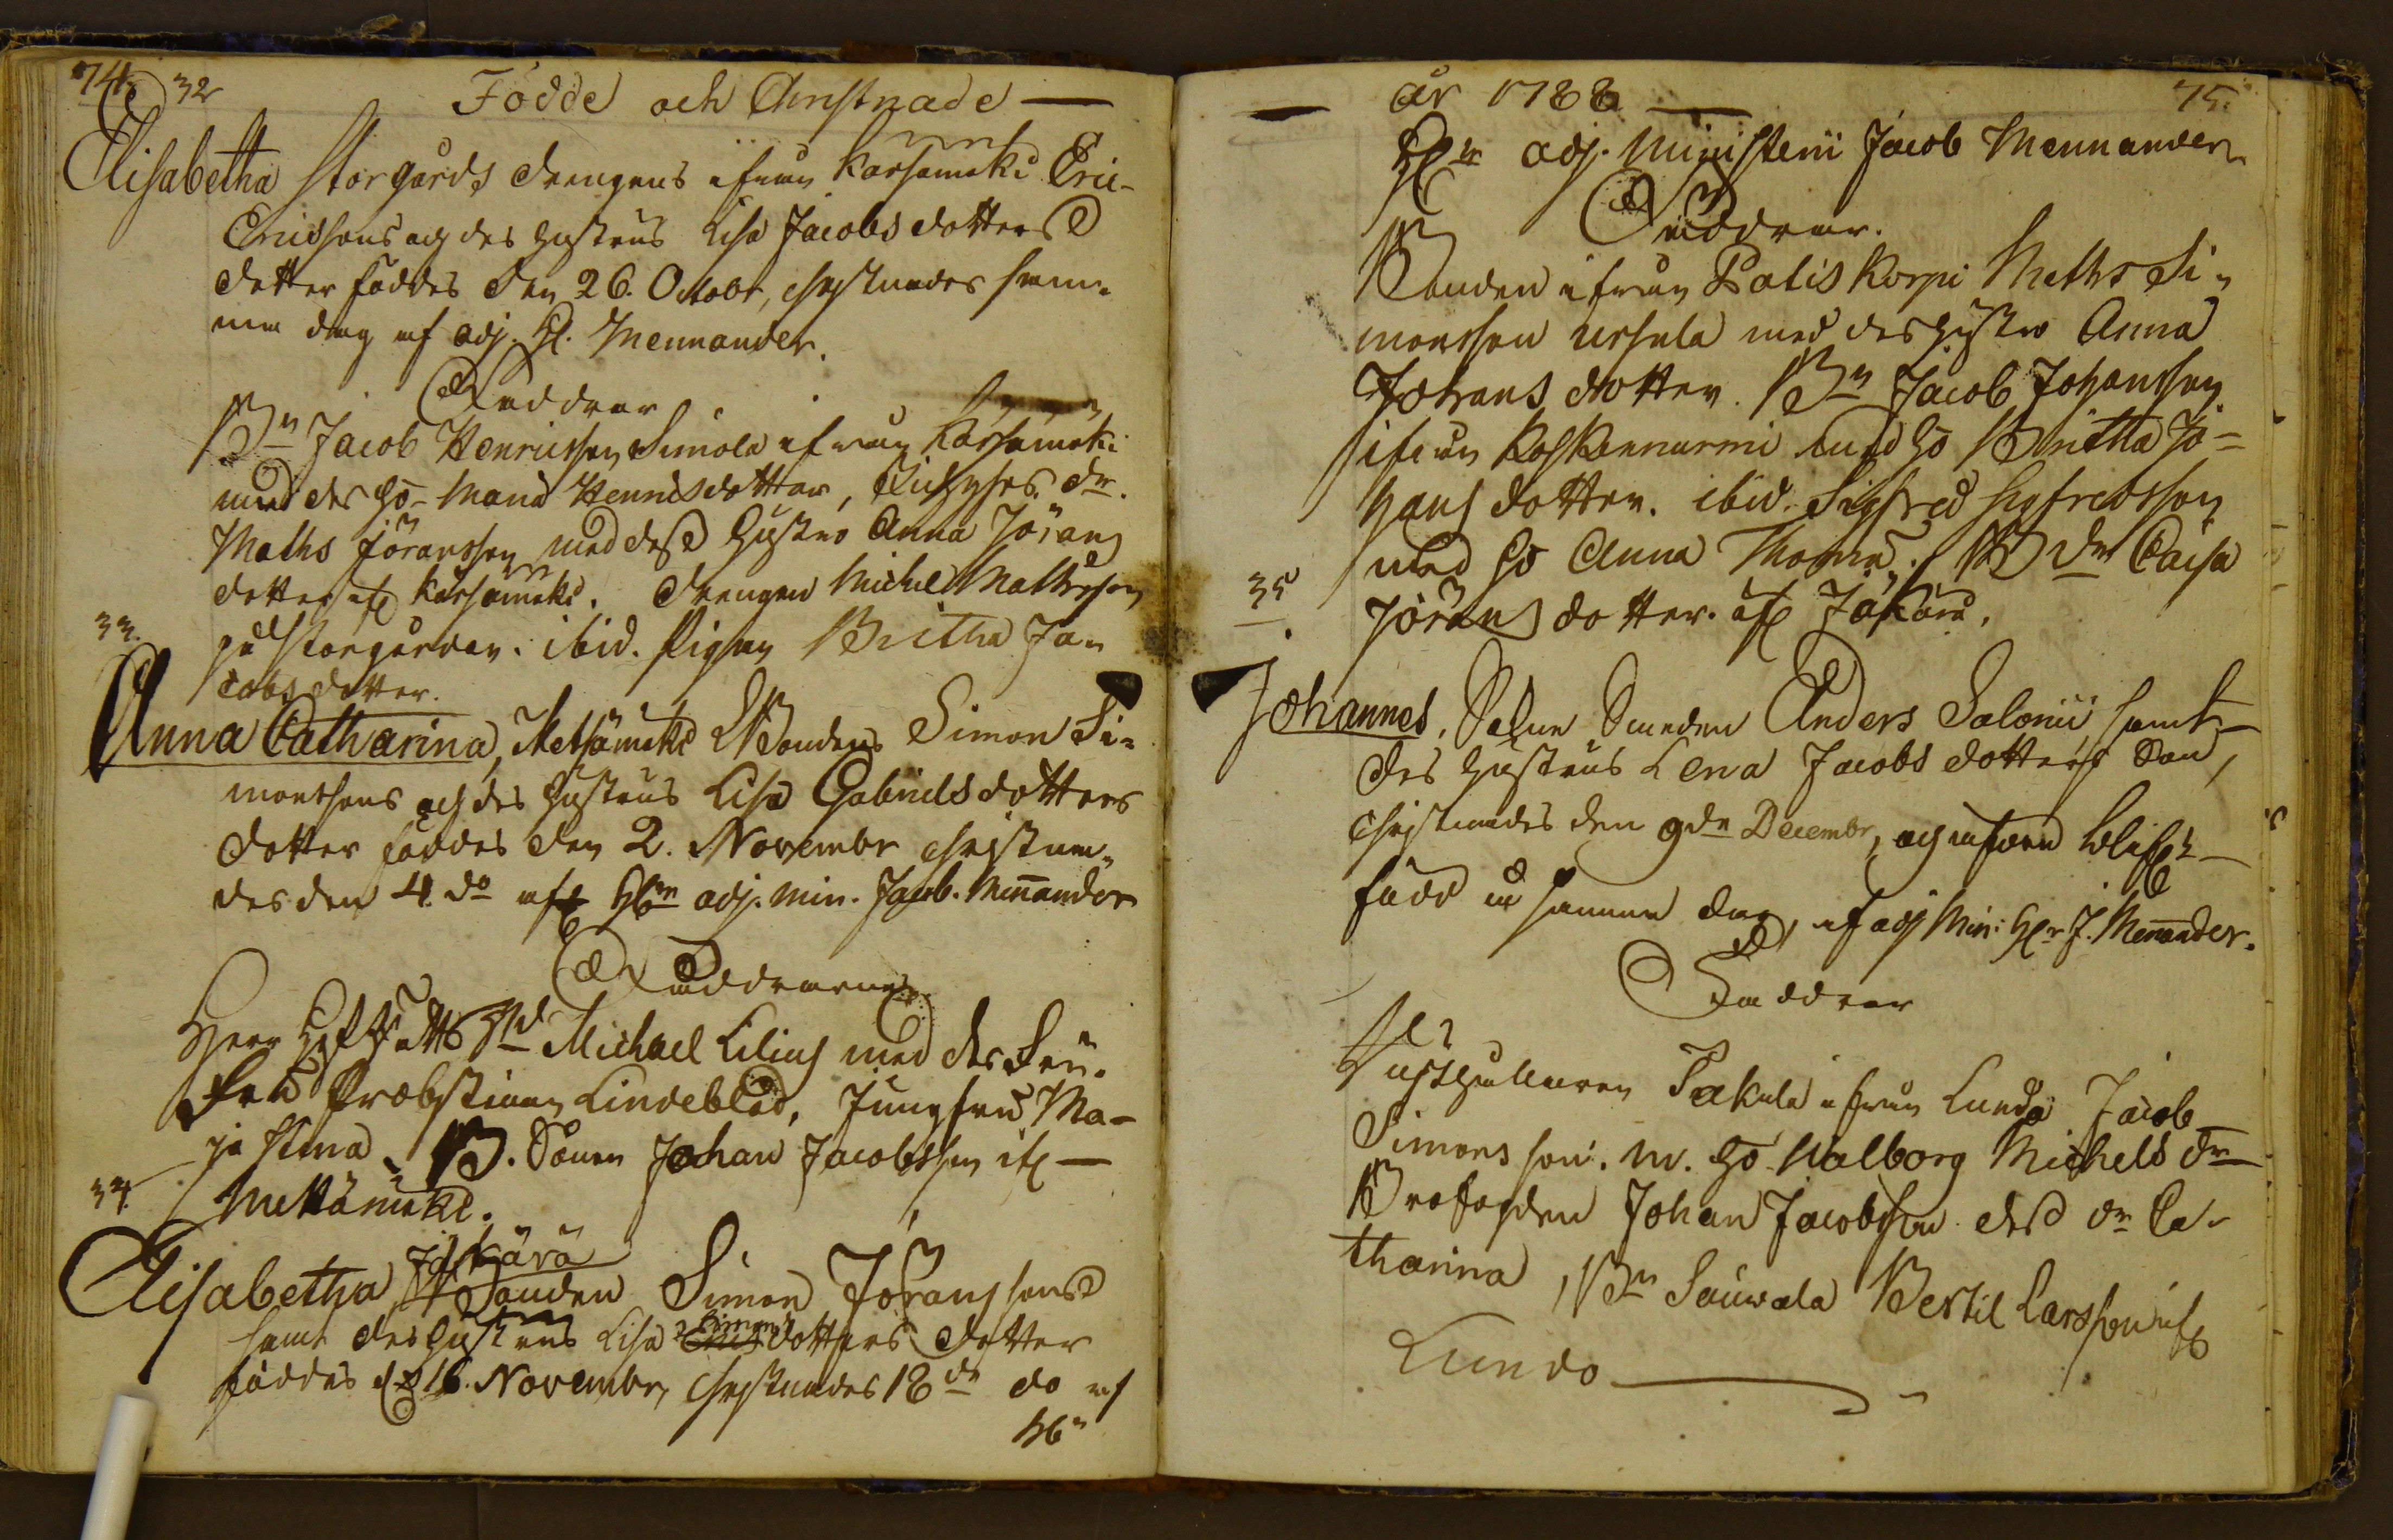 74. 32 Födde och Christnade —
Elisabetha Storgårds drengens ifrån Karsamäki Eric
Ericsons och des hustrus Lisa Jacobs dotters
dotter föddes den 26. Octobr, christnades sam-
ma dag af adj. H. Mennander.
Faddrar
Bn Jacob Henricsson Simola ifrån Kärsämäki
med des ho- Maria Henricsdotter, dr.
Maths Jöransson med dess hustro Anna Jörans
dotter if Kärsämäki. drengen Michel Mathsson
33.
på Storgården. ibid. Pigan Britha Ja-
cobsdotter.
Anna Catharina, Metsämäki Bondens Simon Si-
monsons och des hustrus Lisa Gabriels dotters
dotter föddes den 2. Novembr christna-
des den 4. do af Hrr adj. min. Jacob. Mennander
Faddrarne
Herr Michael Lilius med des Frü.
Fru Probstinnan Lindeblad, Jungfru Ma-
ja Stina. B. Sonen Johan Jacobsson if —
34.
Mettämäki.
Jäkärä
Elisabetha, Bonden Simon Jöransons
samt des hustrus Lisa Simons dotters dotter
föddes d. 16. Novembr, christnades 18de do af
Hr
— år 1788 — 75.
Hr adj. Ministerii Jacob Mennander
Faddrar.
Bonden ifrån Patis Korpi Maths Si-
monsson Ursula med des hustro Anna
Johans dotter. Bn Jacob Johansson
ifrån Koskennurmi med ho Britha Jo-
hans dotter. ibid. Sigfred Sigfredsson
med ho Anna Thoma. B dr Caisa
35.
Jörans dotter. if Jäkärä.
Johannes, Smeden Anders Salonii samt
des hustrus Lena Jacobs dotters Son,
christnades den 9de Decembr, och
född samma dag, af adj Min: Hr J. Mennander.
Faddrar
Takala ifrån Lundo Jacob
Simons son. m. ho Walborg Michels dr
Brofogden Johan Jacobsson dess dr Ca-
tharina, Bn Sauwala Bertil Larsson if
Lundo —